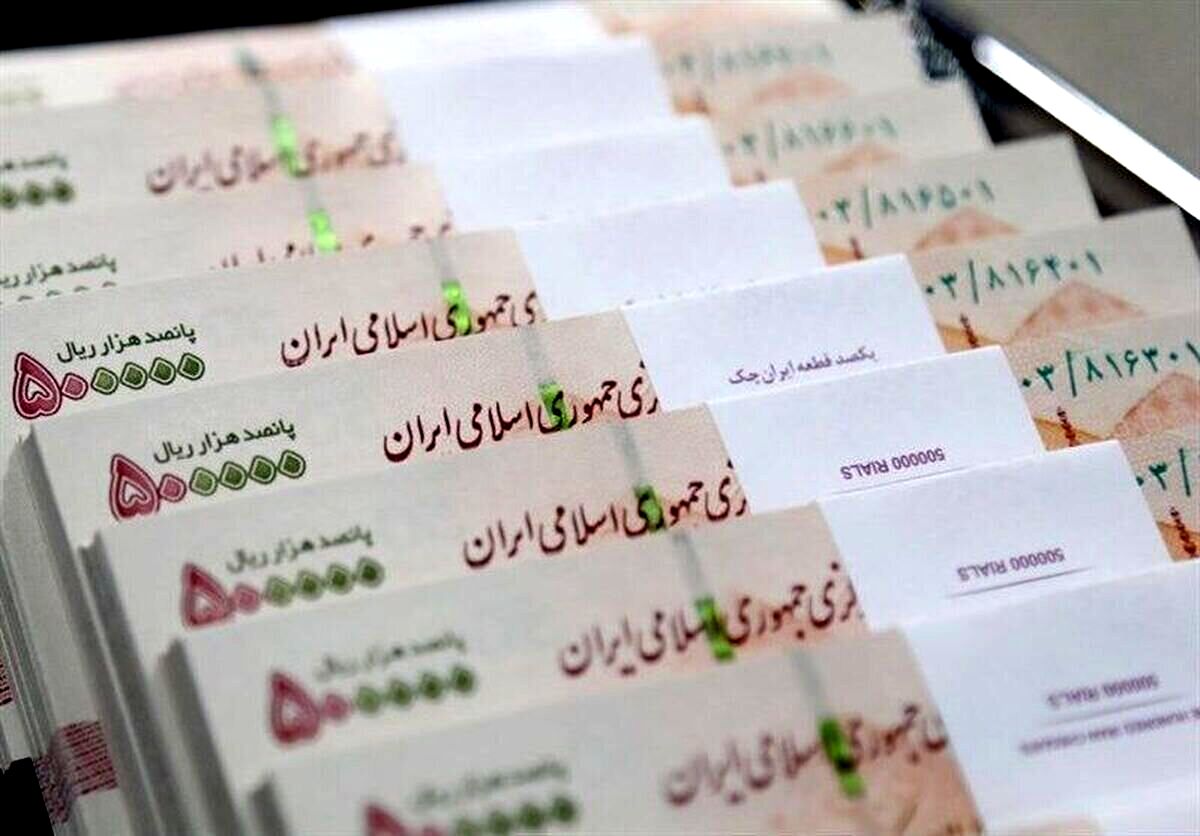 ۰۳/۸۱۶۶۰۱
پانصد هزار ریال
جمهوری اسلامی ایران
۰۳/۸۱۶۵۰۱
پانصد هزار ریال
۰۳/۸۱۶۴۰۱
پانصد هزار ریال
۵۰۰۰۰۰
جمهوری اسلامی ایران
یکصد قطعه ایران چک
۰۳/۸۱۶۳۰۱
پانصد هزار ریال
۵۰۰۰۰۰
جمهوری اسلامی ایران
500000 RIALS
۰۳/
پانصد هزار ریال
۵۰۰۰۰۰
جمهوری اسلامی ایران
500000 RIALS
پانصد هزار ریال
۵۰۰۰۰۰
جمهوری اسلامی ایران
500000 RIALS
HUNDRED IRAN CHEQUES
پانصد هزار ریال
جمهوری اسلامی ایران